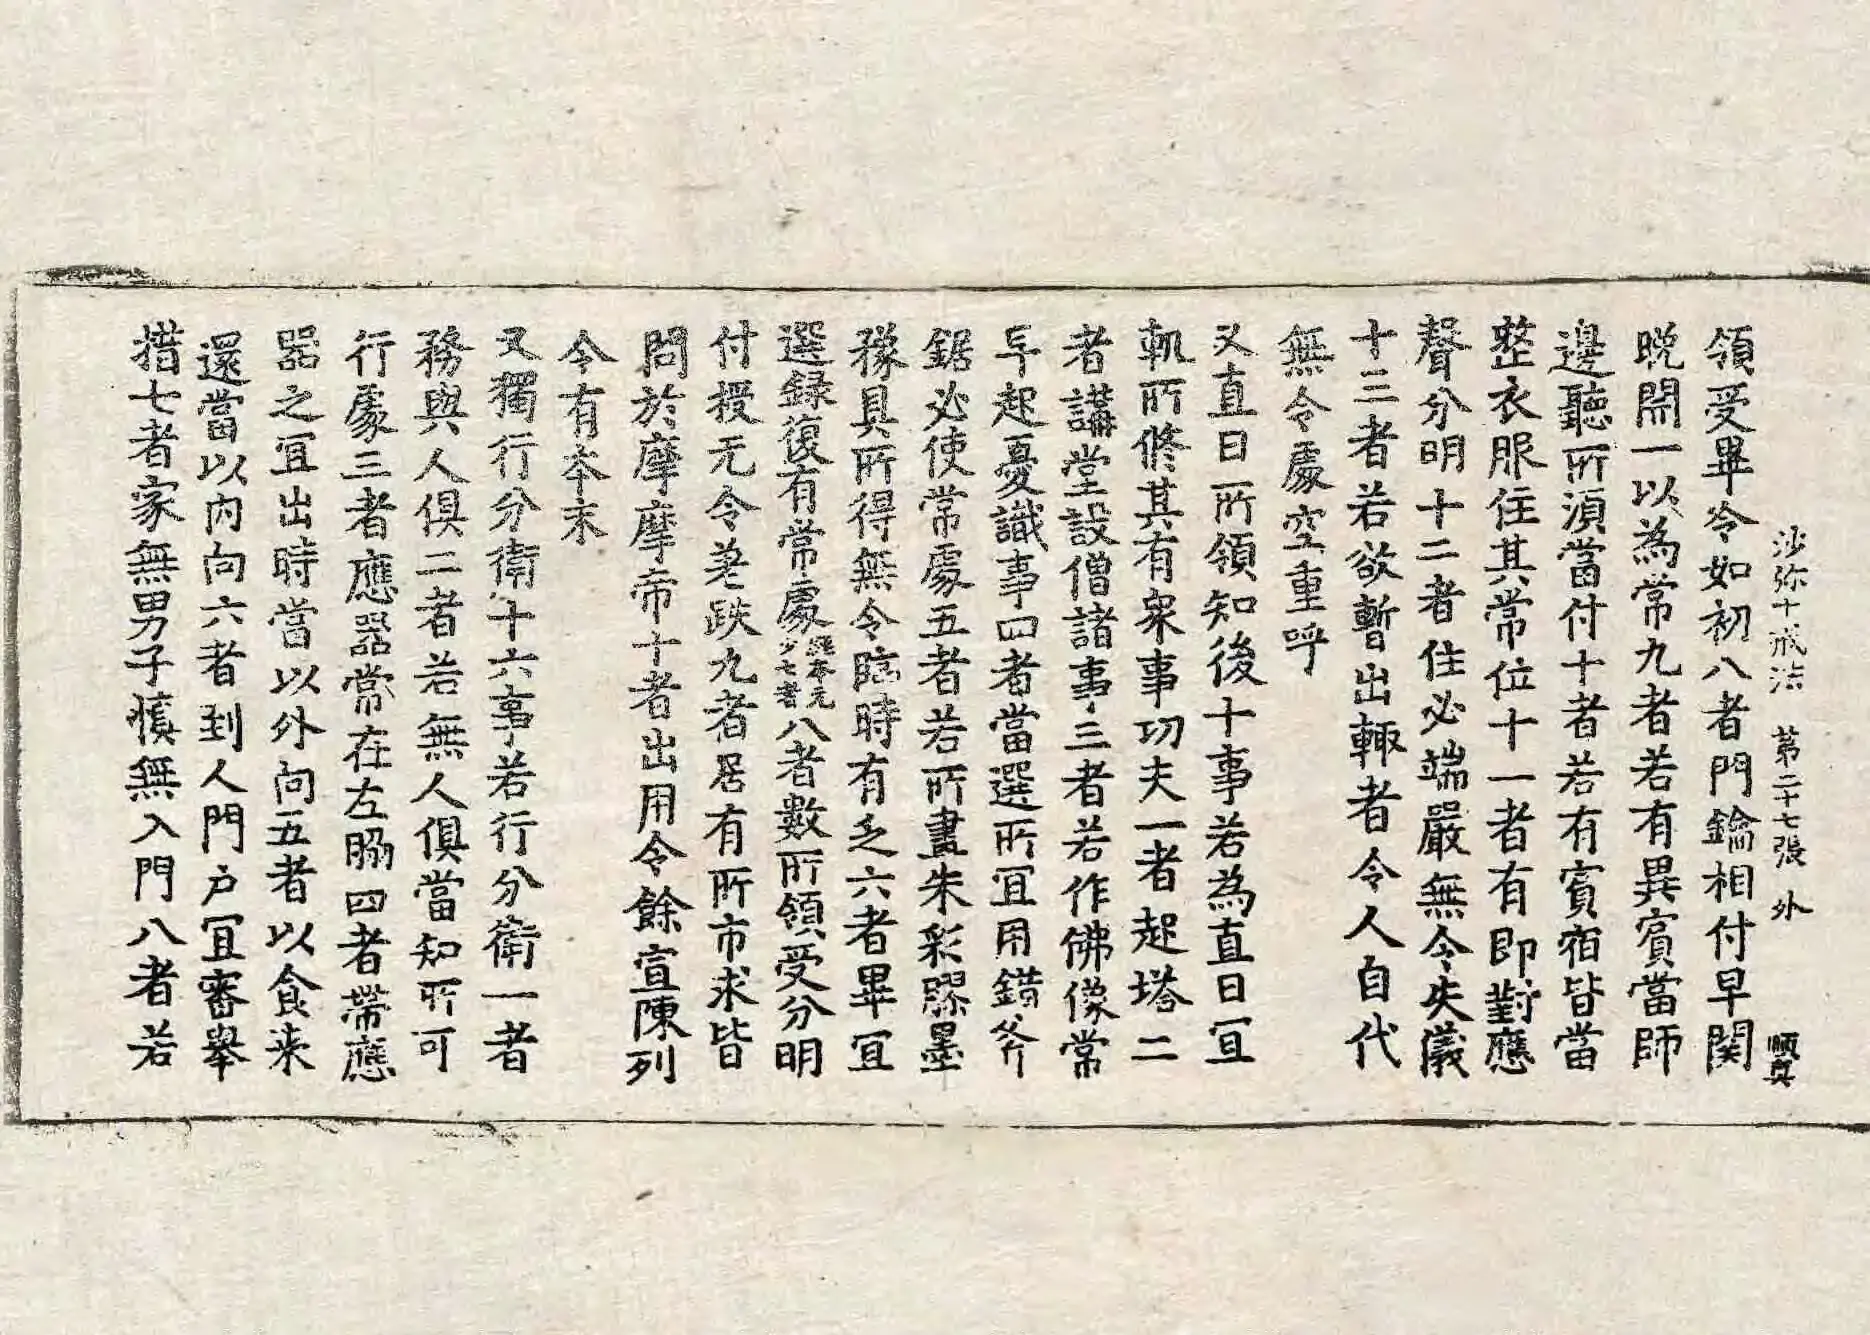 沙弥十戒法　第二十七張　外　順興
領受畢令如初八者門鑰相付早関
晚開一以為常九者若有異賔當師
邊聽所湏當付十者若有賔宿皆當
整衣服住其常位十一者有即對應
聲分明十二者住必端嚴無令失儀
十三者若欲暫出輙者令人自代
無令處空重呼
又直日所領知後十事若為直日冝
軌所修其有衆事功夫一者起塔二
者講堂設僧諸事三者若作佛像常
早起憂識事四者當選所冝用錯斧
鋸必使常處五者若所畫朱彩膠墨
豫具所得無令臨時有乏六者畢冝
選録復有常處經本元少七者八者數所領受分明
付授无令差跌九者居有所市求皆
問於摩摩帝十者出用令餘宣陳列
令有夲末
又獨行分衛十六事若行分衛一者
務與人俱二者若無人俱當知所可
行處三者應器常在左脇四者帶應
器之冝出時當以外向五者以食来
還當以內向六者到人門户冝審舉
措七者家無男子慎無入門八者若